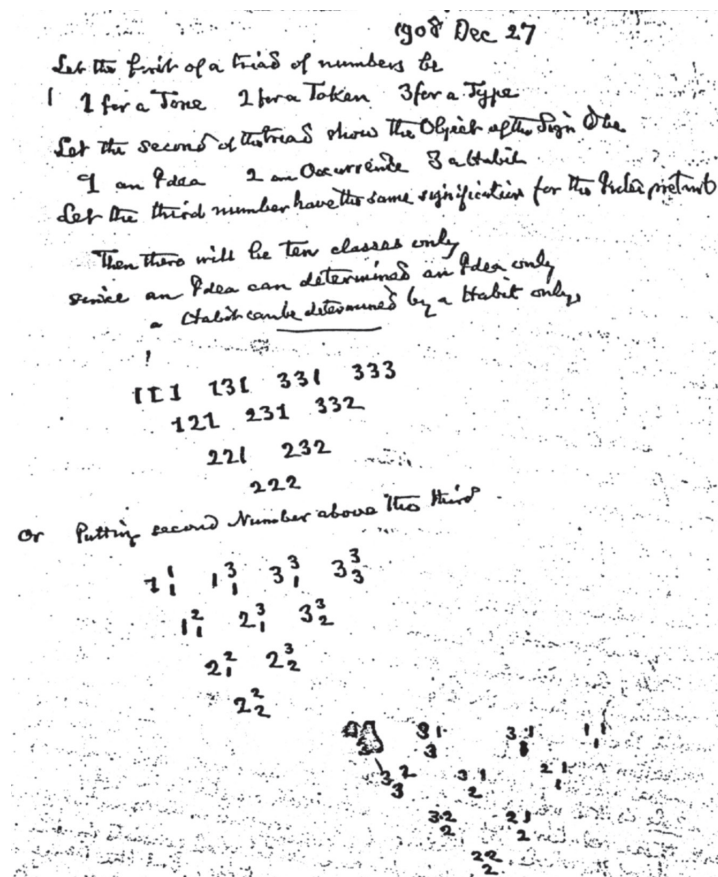 1908 Dec 27
Let the first of a triad of numbers be
1 for a Tone 2 for a Token 3 for a Type
Let the second of the triad show the Object of the Sign be
1 an Idea 2 an Occurrence 3 a Habit
Let the third number have the same signification for the Interpretant
Then there will be ten classes only
since an Idea can determined an Idea only
a Habit can be determined by a Habit only,
111 131 331 333
121 231 332
221 232
222
Or Putting second Number above the third
1 1 1 1 3 1 3 3 1 3 3 3
1 2 1 2 3 1 3 3 2
2 2 1 2 3 2
2 2 2
3 1 3 1 1 1
3 1
3 2 3 1 2 1
3 2 1
3 2 2 1
2 2
2 2
2